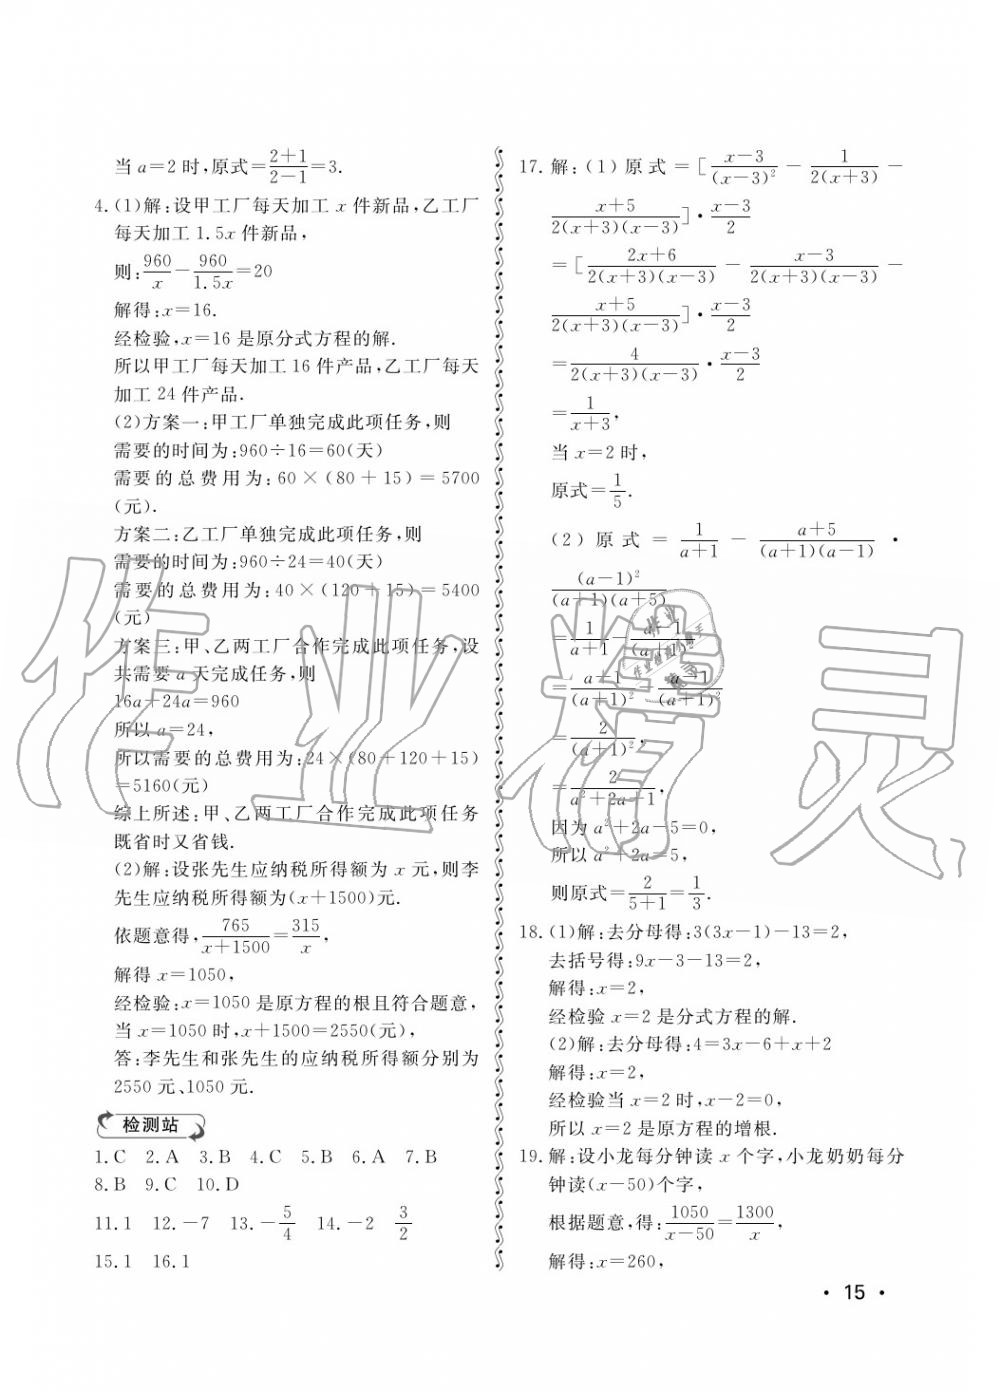 当 a=2 时,原式=\frac{2+1}{2-1}=3.
4.(1)解:设甲工厂每天加工 x 件新品,乙工厂
每天加工 1.5x 件新品,
则:\frac{960}{x}-\frac{960}{1.5x}=20
解得:x=16.
经检验,x=16 是原分式方程的解.
所以甲工厂每天加工 16 件产品,乙工厂每天
加工 24 件产品.
(2)方案一:甲工厂单独完成此项任务,则
需要的时间为:960÷16=60(天)
需要的总费用为:60×(80+15)=5700
(元).
方案二:乙工厂单独完成此项任务,则
需要的时间为:960÷24=40(天)
需要的总费用为:40×(120+15)=5400
(元)
方案三:甲、乙两工厂合作完成此项任务,设
共需要 a 天完成任务,则
16a+24a=960
所以 a=24,
所以需要的总费用为:24×(80+120+15)
=5160(元)
综上所述:甲、乙两工厂合作完成此项任务
既省时又省钱.
(2)解:设张先生应纳税所得额为 x 元,则李
先生应纳税所得额为(x+1500)元.
依题意得,\frac{765}{x+1500}=\frac{315}{x},
解得 x=1050,
经检验:x=1050 是原方程的根且符合题意,
当 x=1050 时,x+1500=2550(元),
答:李先生和张先生的应纳税所得额分别为
2550 元、1050 元.
检测站
1.C 2.A 3.B 4.C 5.B 6.A 7.B
8.B 9.C 10.D
11.1 12.-7 13.-\frac{5}{4} 14.-2 \frac{3}{2}
15.1 16.1
17.解:(1)原式=[\frac{x-3}{(x-3)^2}-\frac{1}{2(x+3)}-
\frac{x+5}{2(x+3)(x-3)}]·\frac{x-3}{2}
=[\frac{2x+6}{2(x+3)(x-3)}-\frac{x-3}{2(x+3)(x-3)}-
\frac{x+5}{2(x+3)(x-3)}]·\frac{x-3}{2}
=\frac{4}{2(x+3)(x-3)}·\frac{x-3}{2}
=\frac{1}{x+3},
当 x=2 时,
原式=\frac{1}{5}.
(2)原式=\frac{1}{a+1}-\frac{a+5}{(a+1)(a-1)}·
\frac{(a-1)^2}{(a+1)(a+5)}
=\frac{1}{a+1}-\frac{a-1}{(a+1)^2}
=\frac{a+1}{(a+1)^2}-\frac{a-1}{(a+1)^2}
=\frac{2}{(a+1)^2},
=\frac{2}{a^2+2a+1},
因为 a^2+2a-5=0,
所以 a^2+2a=5,
则原式=\frac{2}{5+1}=\frac{1}{3}.
18.(1)解:去分母得:3(3x-1)-13=2,
去括号得:9x-3-13=2,
解得:x=2,
经检验 x=2 是分式方程的解.
(2)解:去分母得:4=3x-6+x+2
解得:x=2,
经检验当 x=2 时,x-2=0,
所以 x=2 是原方程的增根.
19.解:设小龙每分钟读 x 个字,小龙奶奶每分
钟读(x-50)个字,
根据题意,得:\frac{1050}{x-50}=\frac{1300}{x},
解得:x=260,
·15·
作业精灵